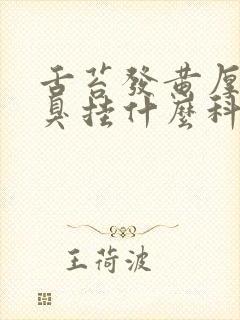 舌苔發黃厚
臭挂什麼科
王荷波